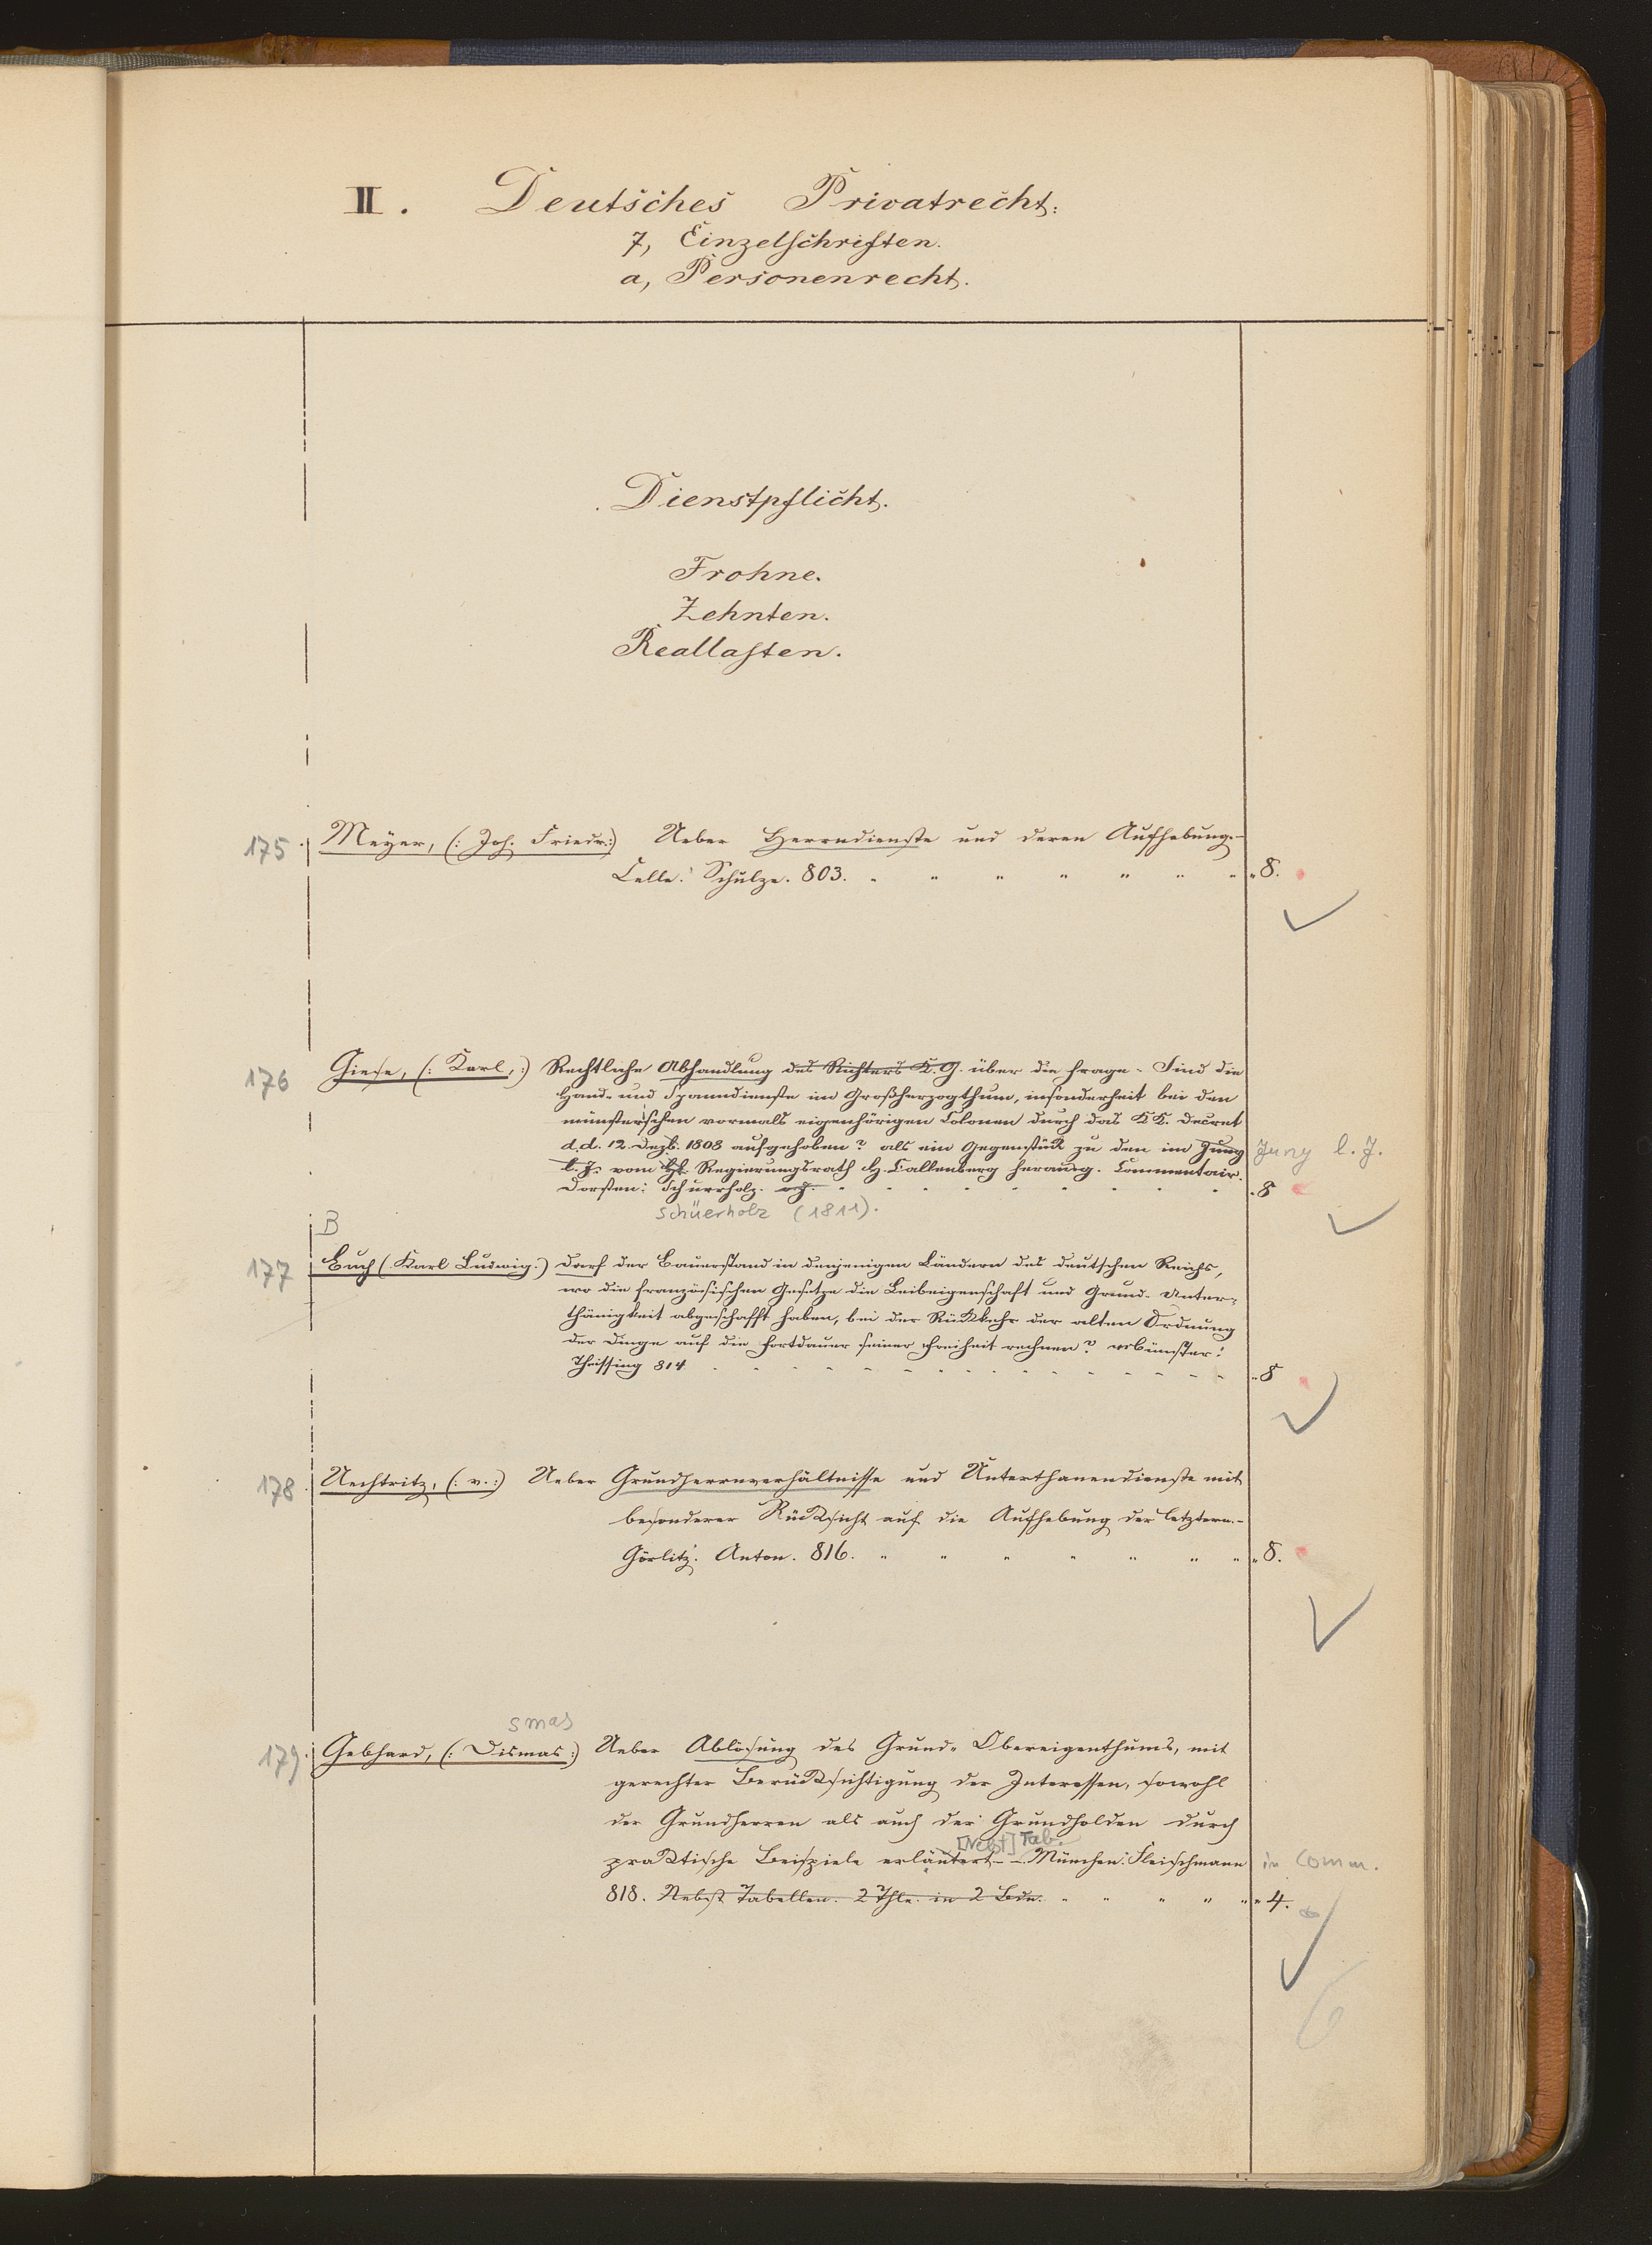 II. Deutsches Privatrecht:
7, Einzelschriften.
a, Personenrecht.
Dienstpflicht.
Frohne.
Zehnten.
Reallasten.
175. Meyer, (: Joh. Friedr:) Ueber Herrndienste und deren Aufhebung.-
Celle: Schulze. 803. " " " " " " " " 8.
176 Giese, (: Karl, :) Rechtliche Abhandlung des Richters K. G. über die Frage. Sind die
Hand- und Spanndienste im Großherzogthum, insonderheit bei den
münsterschen vormals eigenhörigen Colonen durch das KK. Decret
d.d. 12. Dezb. 1808 aufgehoben? als ein Gegenstück zu den im Juny Juny l. J.
l. J. vom Regierungsrath H. Callenberg herausg. Commentair.
Dorsten: Schurrholz. o.J. 8
Schüerholz (1811).
B
177 Buch (: Karl Ludwig:) Darf der Bauerstand in denjenigen Ländern des deutschen Reichs,
wo die französischen Gesetze die Leibeigenschaft und Grund-Unter-
thänigkeit abgeschafft haben, bei der Rückkehr der alten Ordnung
der Dinge auf die Fortdauer seiner Freiheit rechnen? Münster:
Theissing 814 8
178. Uechtritz, (: v. :) Ueber Grundherrnverhältnisse und Unterthanendienste mit
besonderer Rücksicht auf die Aufhebung der letztern.-
Görlitz: Anton. 816. " " " " " " " " 8.
smas
179. Gebhard, (: Dismas :) Ueber Ablösung des Grund-Obereigenthums, mit
gerechter Berücksichtigung der Interessen, sowohl
der Grundherren als auch der Grundholden durch
[Nebst] Tab.
praktische Beispiele erläutert.- München: Fleischmann in Comm.
818. Nebst Tabellen. 2 Thle. in 2 Bdn. " " " " " " 4.
6